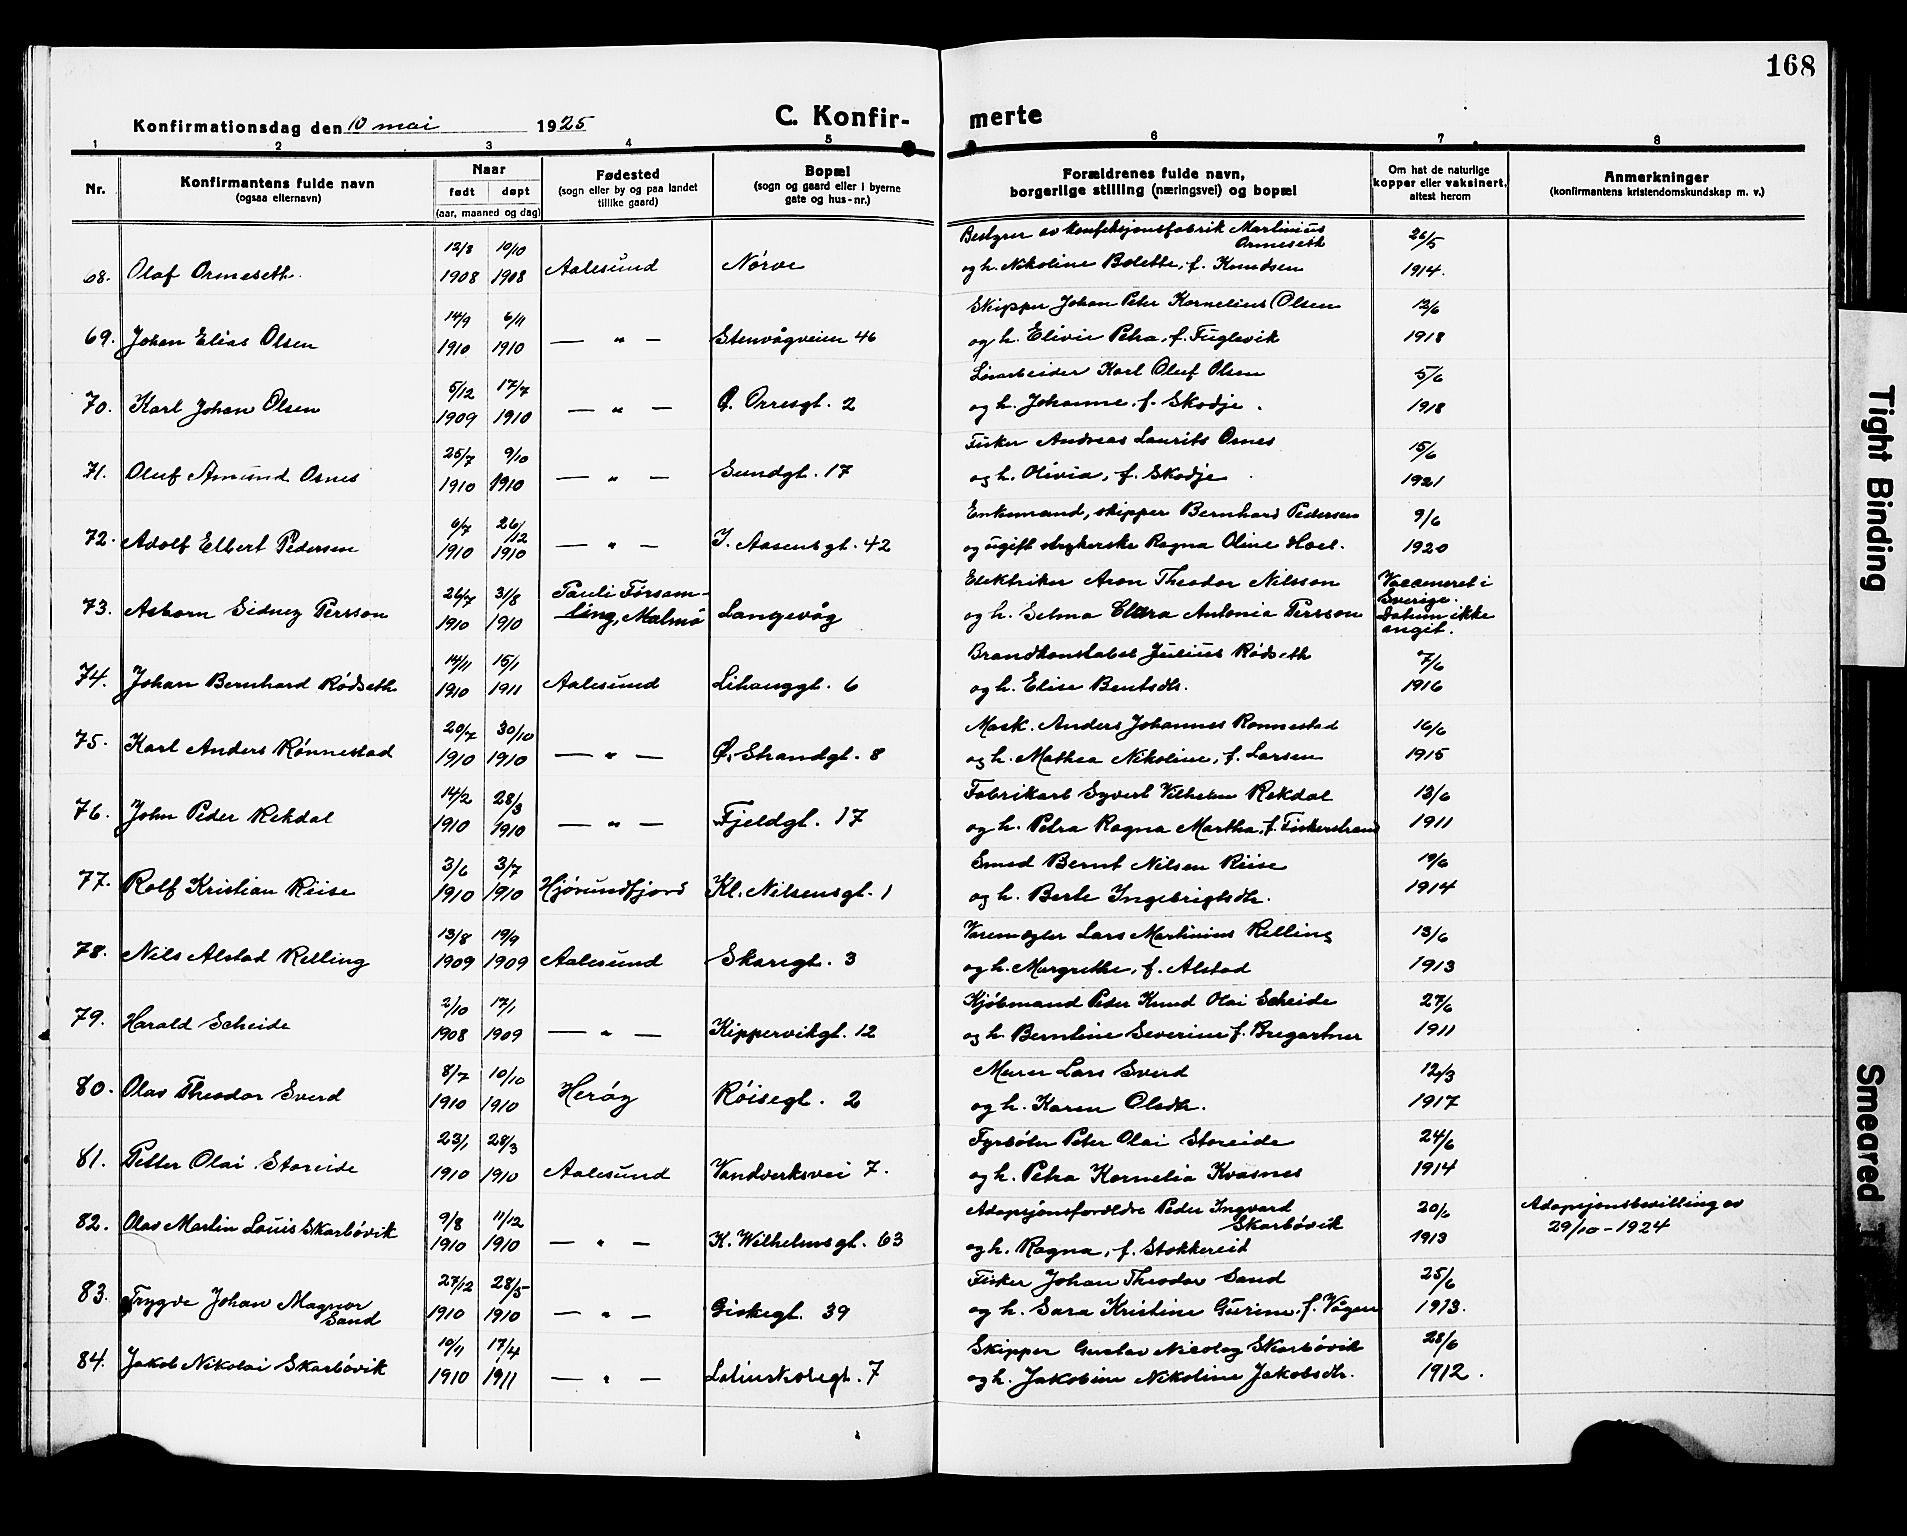 168
Konfirmationsdag den 10 mai 1925
C. Konfir-
merte
1 2 3 4 5 6 7 8
Nr.
Konfirmantens fulde navn
(ogsaa efternavn)
Naar
født døpt
(aar, maaned og dag)
Fødested
(sogn eller by og paa landet
tillike gaard)
Bopæl
(sogn og gaard eller i byerne
gate og hus-nr.)
Forældrenes fulde navn,
borgerlige stilling (næringsvei) og bopæl
Om hat de naturlige
kopper eller vaksinert,
attest herom
Anmerkninger
(konfirmantens kristendomskundskap m. v.)
12/8 10/10 Bestyrer av konfeksjonsfabrik Martinius Ormeseth 26/5
68. Olaf Ormeseth. 1908 1908 Aalesund Nørve og h. Nikoline Bolette, f. Knudsen 1914.
14/9 6/11 Skipper Johan Peter Kornelius Olsen 12/6
69. Johan Elias Olsen 1910 1910 — " — Stenvågveien 46 og h. Elivie Petra, f. Fuglevik 1918
5/12 17/7 Løsarbeider Karl Oluf Olsen 5/6
70. Karl Johan Olsen 1909 1910 — " — Ø. Orresgt. 2 og h. Johanne, f. Skodje. 1918
25/7 9/10 Fisker Andreas Laurits Osnes 15/6
71. Oluf Amund Osnes 1910 1910 — " — Sundgt. 17 og h. Olivia, f. Skodje 1921
6/7 26/12 Enkemand, skipper Bernhard Pedersen 9/6
72. Adolf Elbert Pedersen 1910 1910 — " — I. Aasensgt. 42 og ugift strykerske Ragna Oline Hoel. 1920
26/7 31/8 Pauli Forsam- Elektriker Aron Theodor Nilsson Vaccineret i
Sverige.
73. Asborn Sidney Persson 1910 1910 ling, Malmø Langevåg og h. Selma Clara Antonia Persson Datum ikke
angit.
14/11 15/1 Brandkonstabel Julius Rødseth 7/6
74. Johan Bernhard Rødseth 1910 1911 Aalesund Lihauggt. 6 og h. Elise Bentsdtr. 1916
20/7 30/10 Mask. Anders Johannes Rønnestad 16/6
75. Karl Anders Rønnestad 1910 1910 — " — Ø. Strandgt. 8 og h. Mathea Nikoline, f. Larsen 1915
14/2 28/3 Fabrikarb Syvert Vilhelm Rekdal 13/6
76. John Peder Rekdal 1910 1910 — " — Fjeldgt. 17 og h. Petra Ragna Martha, f. Fiskerstrand 1911
3/6 3/7 Smed Bernt Nilsen Riise 19/6
77. Rolf Kristian Riise 1910 1910 Hjørundfjord Kl. Nilsensgt. 1 og h. Berte Ingebrigtsdtr. 1914
13/8 19/9 Varemægler Lars Martinius Relling 13/6
78. Nils Alstad Relling 1909 1909 Aalesund Skaregt. 3 og h. Margrethe, f. Alstad 1913
2/10 17/1 Kjøbmand Peder Knud Olai Scheide 27/6
79. Harald Scheide 1908 1909 — " — Kippervikgt. 12 og h. Berntine Severine f. Bregartner 1911
8/7 10/10 Murer Lars Sverd 12/3
80. Olav Theodor Sverd 1910 1910 Herøy Røisegt. 2 og h. Karen Olsdtr. 1917
23/1 28/3 Fyrbøter Peter Olai Storeide 24/6
81. Petter Olai Storeide 1910 1910 Aalesund Vandverksvei 7. og h. Petra Kornelia Kvasnes 1914
9/8 11/12 Adopsjonsforeldre Peder Ingvard Skarbøvik 20/6 Adopsjonsbevilling av
82. Olav Martin Louis Skarbøvik 1910 1910 — " — K. Wilhelmsgt. 63 og h. Ragna, f. Stokkereit 1913 29/10 - 1924
27/12 28/5 Fisker Johan Theodor Sand 25/6
83. Trygve Johan Magnor Sand 1910 1910 — " — Giskegt. 39 og h. Sara Kristine Gurine, f. Vågen 1913.
10/11 17/4 Skipper Gustav Nicolay Skarbøvik 28/6
84. Jakob Nikolai Skarbøvik 1910 1911 — " — Latinskolegt. 7 og h. Jakobine Nikoline Jakobsdtr. 1912.
Tight Binding
Smeared